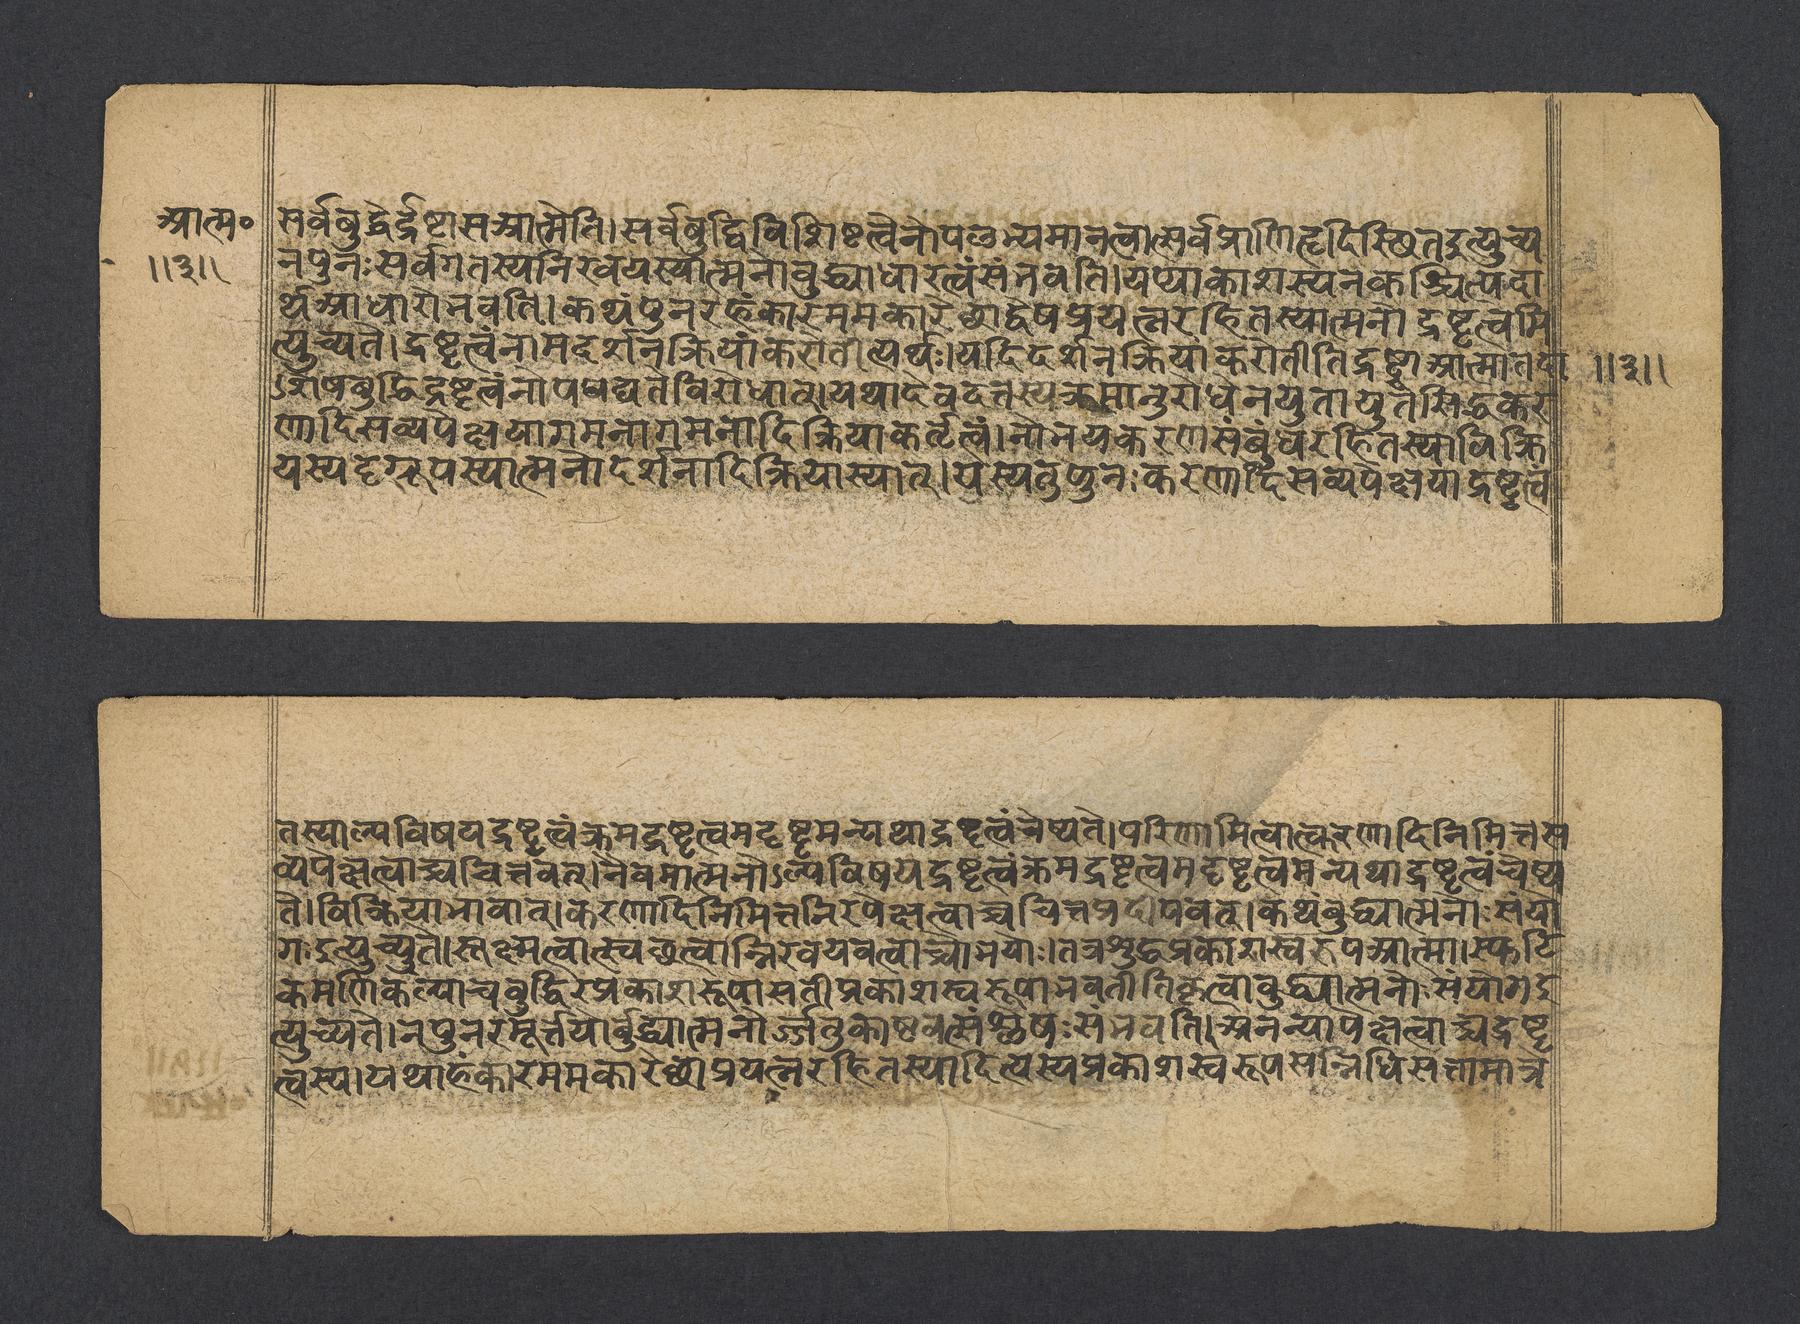 आत्म०
॥३॥
सर्वबुद्धेर्द्रष्टासआत्मेति।सर्वबुद्धिविशिष्टत्वेनोपलभ्यमानत्वात्सर्वप्राणिहृदिस्थितइत्युच्य
नपुनःसर्वगतस्यनिरवयस्यात्मनोबुद्ध्याधारत्वंसंभवति।यप्याकाशस्यनकश्चित्पदा
र्थआधारोनवति।कथंपुनरहंकारममकारेछाद्वेषप्रयत्नरहितस्यात्मनो द्रष्टृत्वमि
त्युच्यते।द्रष्टृत्वंनामदर्शनक्रियांकरोतीत्यर्थः।यदिदर्शनक्रियांकरोतीतिद्रष्टाआत्मातदा
॥३॥
ऽशेषबुद्धिद्रष्टृत्वंनोपपद्यतेविरोधात्।यथादेवदत्तस्यक्रमानुरोधेनयुतायुतसिद्धकर
णादिसव्यपेक्षयागमनागमनादिक्रियाकर्तृत्वं।नोभयकरणसंबंधरहितस्याविक्रि
यस्यदृग्रूपस्यात्मनोदर्शनादिक्रियास्यात्।यस्यतुपुनःकरणादिसव्यपेक्षयाद्रष्टृत्वं
तस्याल्पविषयद्रष्टृत्वंक्रमद्रष्टृत्वमदृष्टृमन्यथाद्रष्टृत्वंचेष्यते।परिणामित्वात्करणादिनिमित्तस
व्यपेक्षत्वाच्चचित्तवत्।नैवमात्मनोऽल्पविषयद्रष्टृत्वंक्रमद्रष्टृत्वमदृष्टृत्वमन्यथाद्रष्टृत्वंचेष्य
ते।विक्रियाभावात्।करणादिनिमित्तनिरपेक्षत्वाच्चचित्तप्रदीपवत्।कथंबुद्ध्यात्मनोःसंयो
गःइत्युच्युते।सूक्ष्मत्वात्स्वछत्वान्निरवयवत्वाच्चोभयोः।तत्रशुद्धप्रकाशस्वरूपआत्मा।स्फटि
कमणिकल्पाचबुद्धिरप्रकाशरूपासतीप्रकाशस्वरूपाभवतीतिकृत्वाबुद्ध्यात्मनोःसंयोगइ
त्युच्यते।नपुनरमूर्त्तयोर्बुद्ध्यात्मनोर्ज्जतुकाष्ठवत्संश्लेषःसंभवति।अनन्यापेक्षत्वाच्चद्रष्टृ
त्वस्य।यथाहंकारममकारेछाप्रयत्नरहितस्यादित्यस्यप्रकाशस्वरूपसन्निधिसत्तामात्र